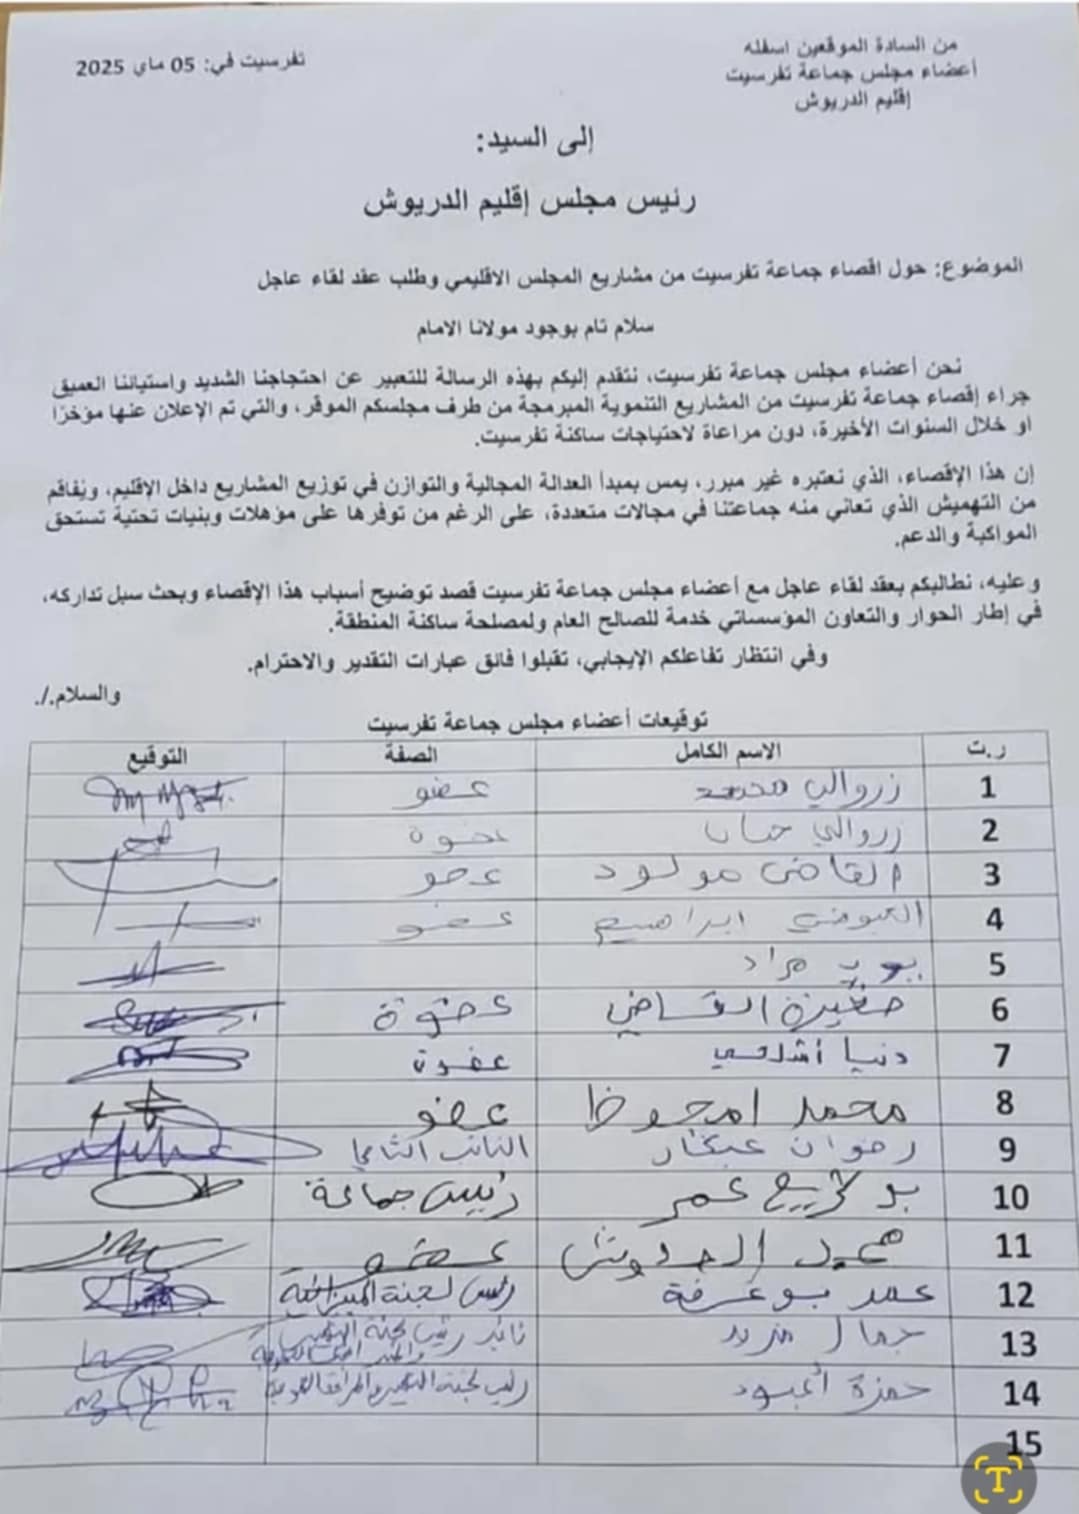 من السادة الموقعين اسفله
أعضاء مجلس جماعة تفرسيت
إقليم الدريوش
تفرسيت في: 05 ماي 2025
إلى السيد:
رئيس مجلس إقليم الدريوش
الموضوع: حول اقصاء جماعة تفرسيت من مشاريع المجلس الاقليمي وطلب عقد لقاء عاجل
سلام تام بوجود مولانا الامام
نحن أعضاء مجلس جماعة تفرسيت، نتقدم إليكم بهذه الرسالة للتعبير عن احتجاجنا الشديد واستيائنا العميق
جراء إقصاء جماعة تفرسيت من المشاريع التنموية المبرمجة من طرف مجلسكم الموقر، والتي تم الإعلان عنها مؤخرًا
او خلال السنوات الأخيرة، دون مراعاة لاحتياجات ساكنة تفرسيت.
إن هذا الإقصاء، الذي نعتبره غير مبرر، يمس بمبدأ العدالة المجالية والتوازن في توزيع المشاريع داخل الإقليم، ويُفاقم
من التهميش الذي تعاني منه جماعتنا في مجالات متعددة، على الرغم من توفرها على مؤهلات وبنيات تحتية تستحق
المواكبة والدعم.
وعليه، نطالبكم بعقد لقاء عاجل مع أعضاء مجلس جماعة تفرسيت قصد توضيح أسباب هذا الإقصاء وبحث سبل تداركه،
في إطار الحوار والتعاون المؤسساتي خدمة للصالح العام ولمصلحة ساكنة المنطقة.
وفي انتظار تفاعلكم الإيجابي، تقبلوا فائق عبارات التقدير والاحترام.
والسلام./.
توقيعات أعضاء مجلس جماعة تفرسيت
ر.ت الاسم الكامل الصفة التوقيع
1 زروالي محمد عضو
2 زروالي حنان عضوة
3 القاضي مولود عضو
4 ابراهيم عضو
5 مراد
6 صغيرة القاضي عضوة
7 دنيا عضوة
8 محمد امحوظ عضو
9 رضوان النائب الثاني
10 عمر رئيس جماعة
11 عضو
12 بوعرفة رئيس لجنة الميزانية
13 جمال مزيد نائب رئيس لجنة
14 حمزة أعبود رئيس لجنة التعمير والمرافق العمومية
15